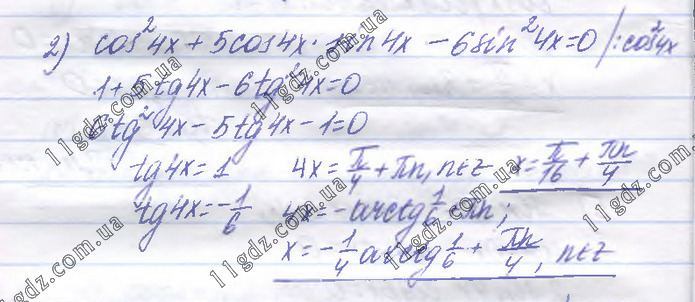 2) cos²4x + 5cos4x · sin4x − 6sin²4x=0 /:cos²4x
1+5tg4x−6tg²4x=0
6tg²4x−5tg4x−1=0
tg4x=1 4x=π/4+πn, n∈z x=π/16+πn/4
tg4x=−1/6 4x=−arctg1/6+πn;
x=−1/4arctg1/6+πn/4, n∈z
11gdz.com.ua
11gdz.com.ua
11gdz.com.ua
11gdz.com.ua
11gdz.com.ua
11gdz.com.ua